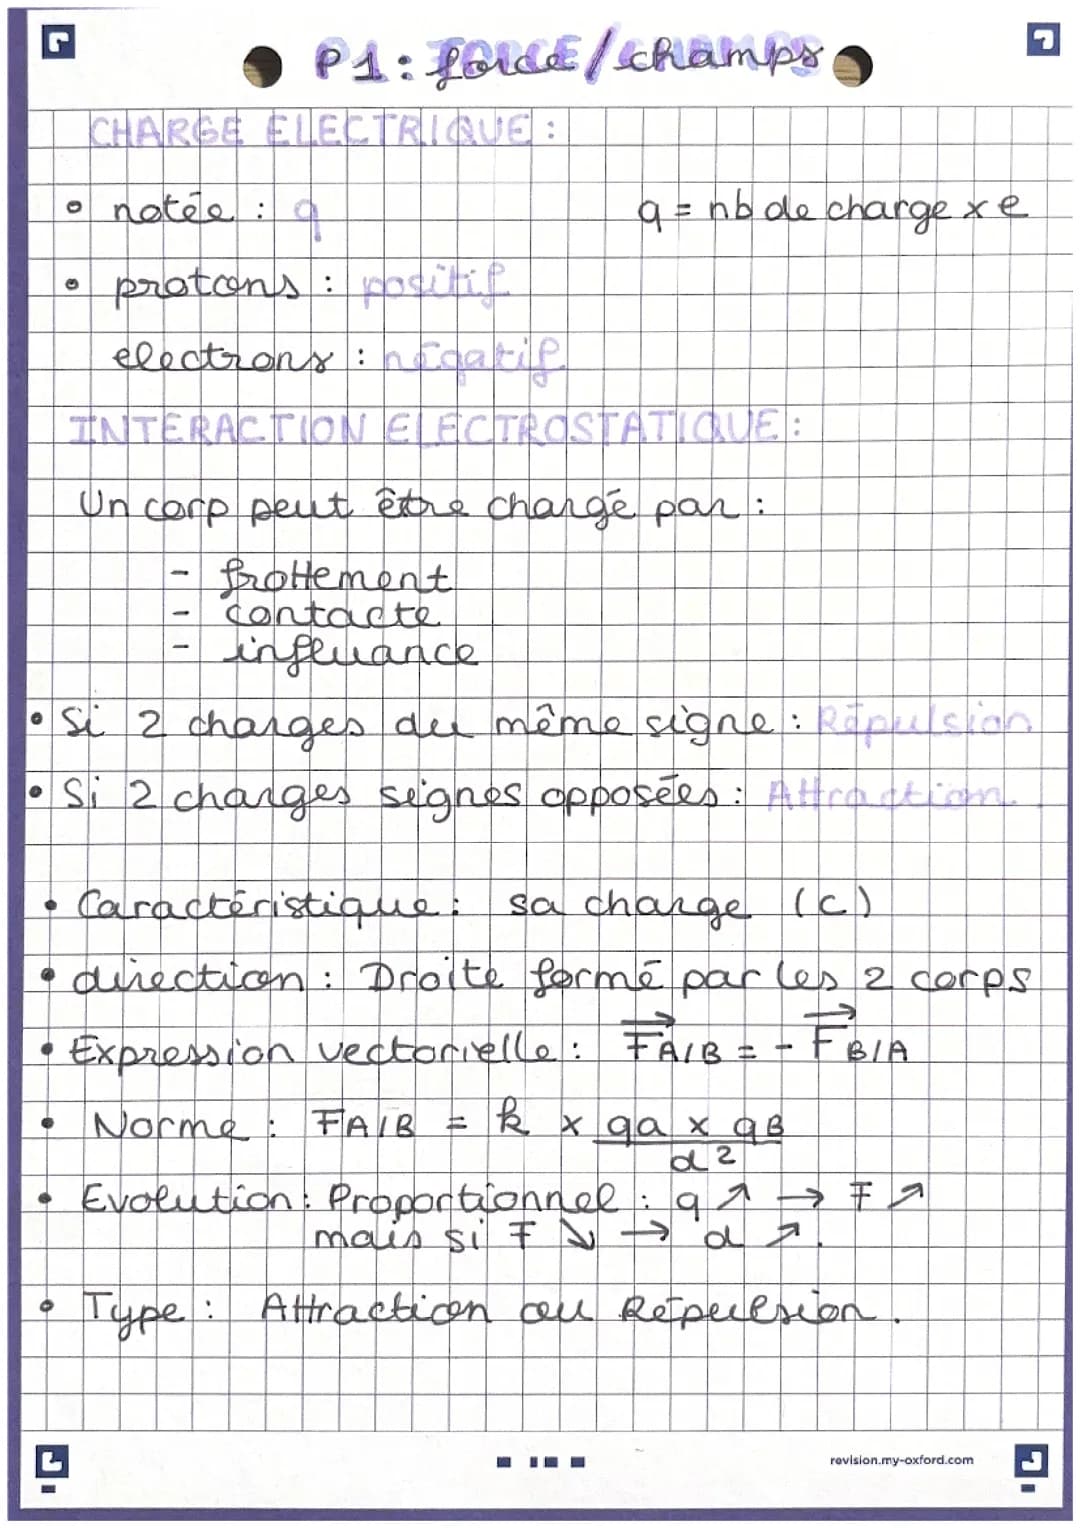 P1: force/champs
CHARGE ELECTRIQUE :
• notée : q
q = nb de charge x e
• protons : positif
electrons : négatif
INTERACTION ELECTROSTATIQUE :
Un corp peut être chargé par :
- frottement
- contacte
- influance
• Si 2 charges du même signe : Répulsion
• Si 2 charges signes opposées : Attraction.
• Caractéristique : sa charge (C)
• direction : Droite formé par les 2 corps
• Expression vectorielle : →FA/B = - →FB/A
• Norme : FA/B = k x qa x qB
d²
• Evolution : Proportionnel : q ↗ → F ↗
mais si F ↘ → d ↗.
• Type : Attraction ou Répulsion.
revision.my-oxford.com